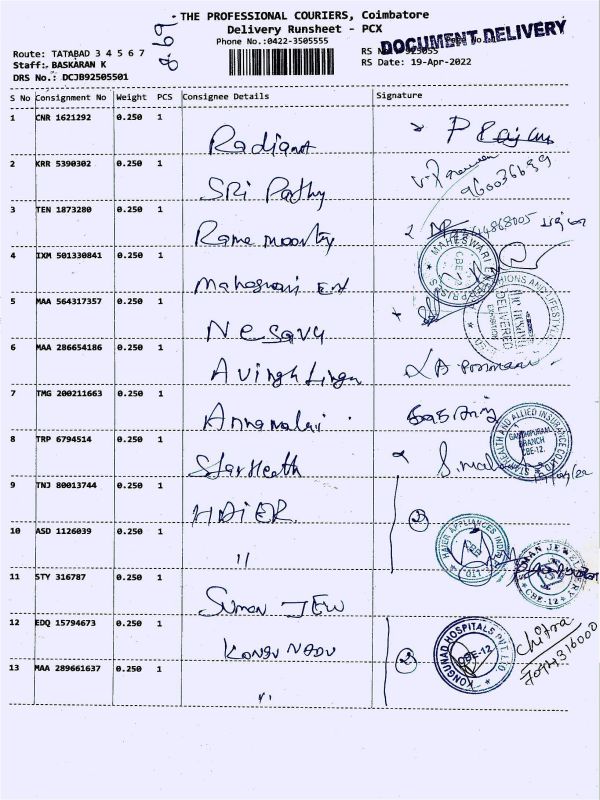 THE PROFESSIONAL COURIERS, Coimbatore
Delivery Runsheet - PCX
Phone No.:0422-3505555
DOCUMENT DELIVERY
Route: TATABAD 3 4 5 6 7
Staff: BASKARAN K
DRS No.: DCJB92505501
RS Date: 19-Apr-2022
S No Consignment No Weight PCS Consignee Details Signature
1 CNR 1621292 0.250 1 Radiant
2 KRR 5390302 0.250 1 SRi Pathy
960036699
3 TEN 1873280 0.250 1 Rama moorthy
4 IXM 501330841 0.250 1 Maheswari Ent
MAHESWARI ENTERPRISES CBE-12
5 MAA 564317357 0.250 1 Nesavu
DELIVERED
6 MAA 286654186 0.250 1 Avinghlingu
7 TMG 200211663 0.250 1 Annamalai
8 TRP 6794514 0.250 1 Star Heath
STAR HEALTH AND ALLIED INSURANCE CO
GANDHIPURAM
BRANCH
CBE-12.
9 TNJ 80013744 0.250 1 HAiER
2
10 ASD 1126039 0.250 1 "
HAIER APPLIANCES INDIA LTD
11 STY 316787 0.250 1 Suman JEW
SUMAN JEWELLERY CBE-12
12 EDQ 15794673 0.250 1 KONGU NADU
2
KONGUNAD HOSPITALS PVT. LTD
CBE-12
Chitra
13 MAA 289661637 0.250 1 "